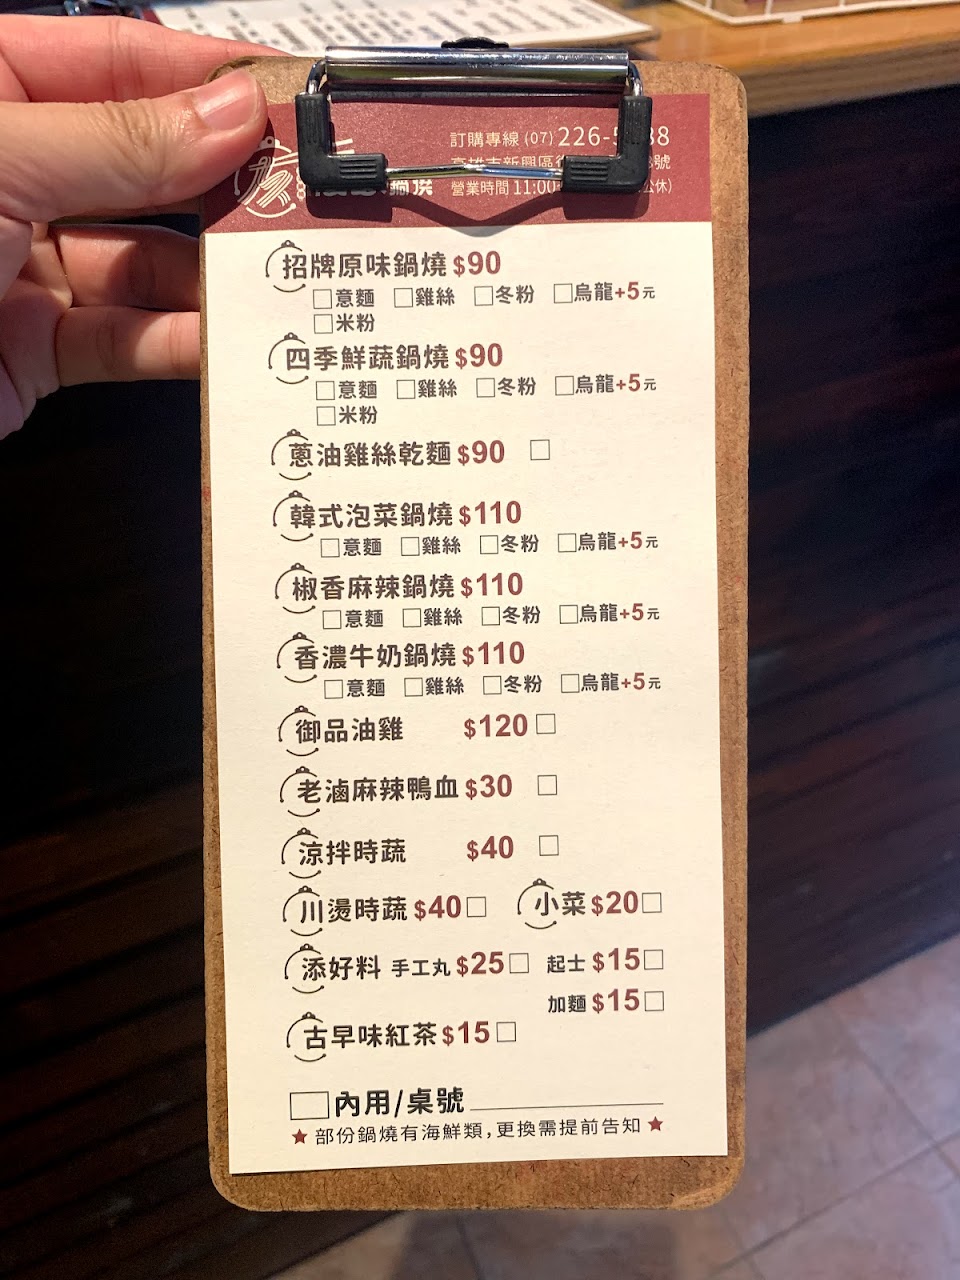 訂購專線 (07) 226-
高雄市新興區
號
營業時間 11:00
公休)
鍋燒
招牌原味鍋燒 $90
□意麵 □雞絲 □冬粉 □烏龍+5元
□米粉
四季鮮蔬鍋燒 $90
□意麵 □雞絲 □冬粉 □烏龍+5元
□米粉
蔥油雞絲乾麵 $90 □
韓式泡菜鍋燒 $110
□意麵 □雞絲 □冬粉 □烏龍+5元
椒香麻辣鍋燒 $110
□意麵 □雞絲 □冬粉 □烏龍+5元
香濃牛奶鍋燒 $110
□意麵 □雞絲 □冬粉 □烏龍+5元
御品油雞 $120 □
老滷麻辣鴨血 $30 □
涼拌時蔬 $40 □
川燙時蔬 $40 □ 小菜 $20 □
添好料 手工丸 $25 □ 起士 $15 □
加麵 $15 □
古早味紅茶 $15 □
□內用/桌號
★ 部份鍋燒有海鮮類,更換需提前告知 ★